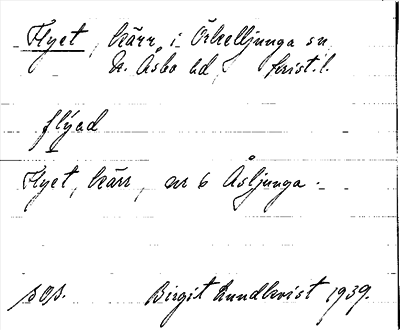 Flyet, kärr, i Örkelljunga sn
N. Åsbo hd, Krist. l.
flýad
Flyet, kärr, nr 6 Åsljunga.
sos. Birgit Lundkvist 1939.